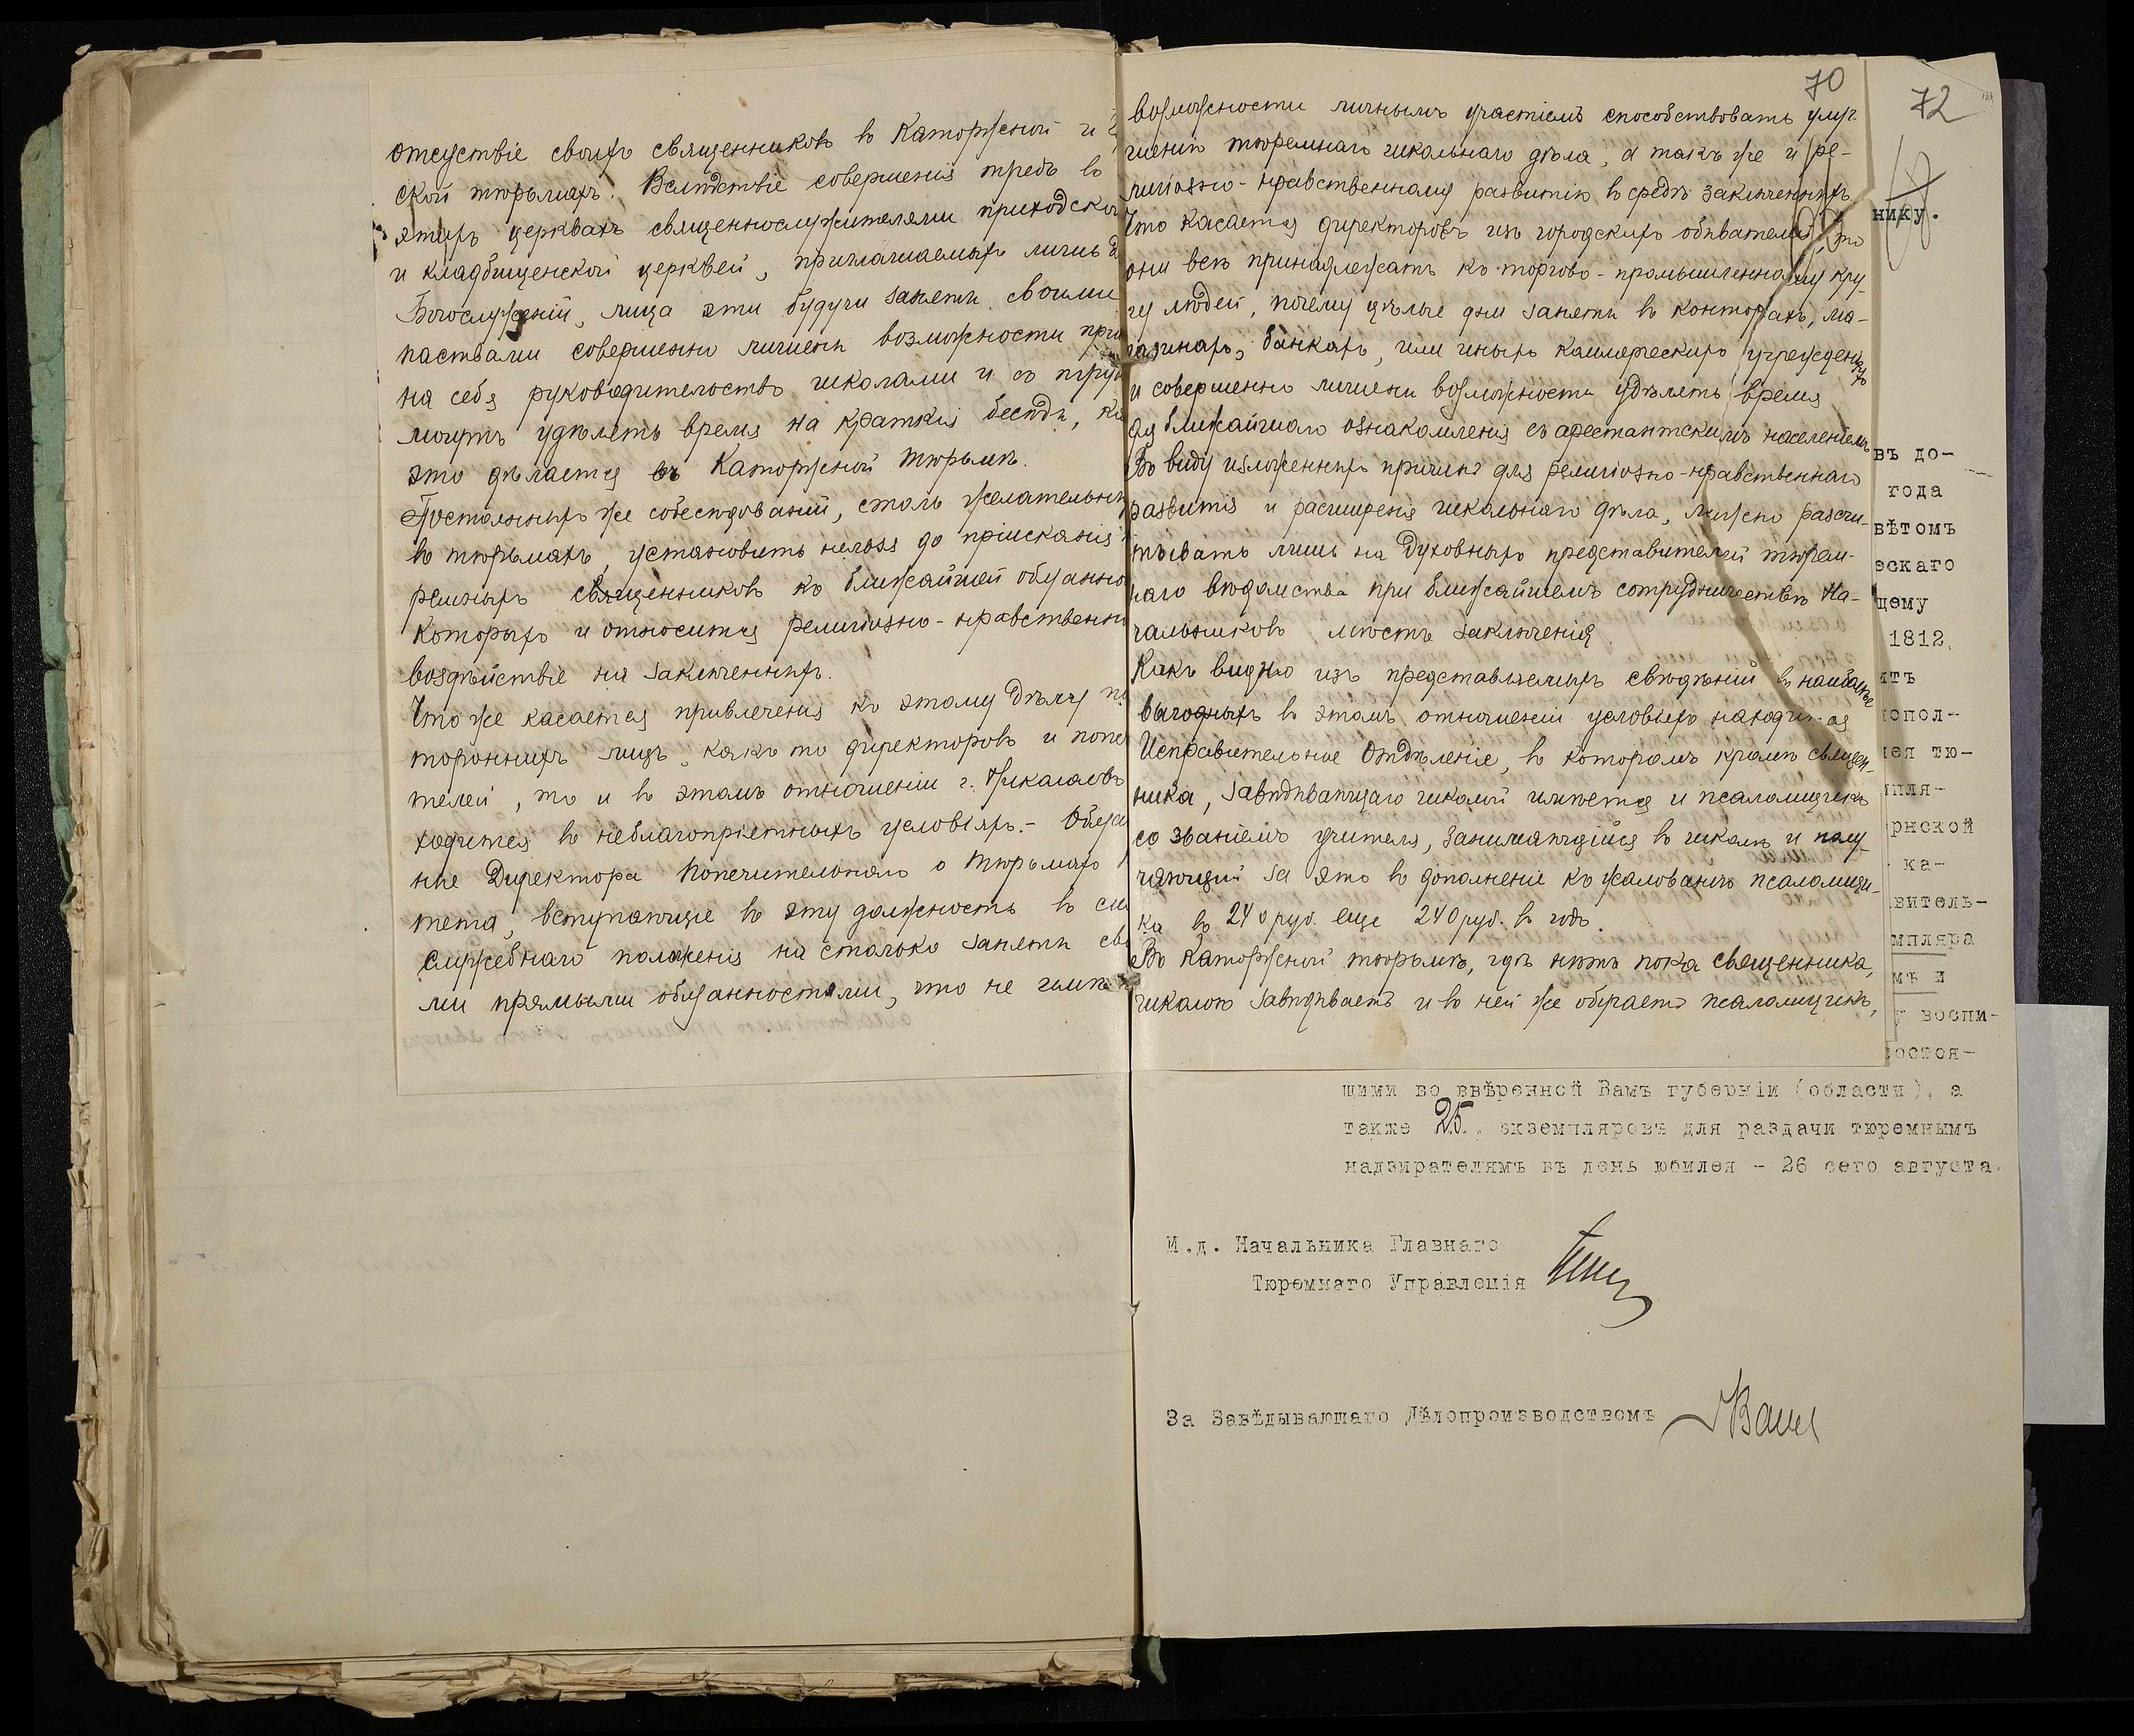 отсуствіе своихъ священниковъ въ Каторжной и
ской тюрьмахъ. Вслѣдствіе совершенія требъ въ
этихъ церквахъ священнослужителями приходско
и кладбищенской церквей, приглашаемыхъ лишь д
Богослуженій, лица эти будучи заняты своими
паствами совершенно лишены возможности при
на себя руководительство школами и съ труд
могутъ удѣлять время на краткія бесѣды, ка
это дѣлается въ Каторжной тюрьмѣ.
Постоянныхъ же собесѣдованій, столь желательны
въ тюрьмахъ, установить нельзя до пріисканія
ремныхъ священниковъ къ ближайшей обязанно
которыхъ и относится религіозно-нравственно
воздѣйствіе на заключенныхъ.
Что же касается привлеченія къ этому дѣлу по
тороннихъ лицъ, какъ то директоровъ и попе
телей, то и въ этомъ отношеніи г. Николаевъ
ходится въ неблагопріятныхъ условіяхъ. - Обяза
ные Директора Попечительнаго о тюрьмахъ
тета, вступающіе въ эту должность въ си
служебнаго положенія на столько заняты сво
ми прямыми обязанностями, что не имѣ
70
возможности личнымъ участіемъ способствовать улуч
шенію тюремнаго школьнаго дѣла, а такъ же и ре-
лигіозно-нравственному развитію въ средѣ заключенныхъ
Что касается директоровъ изъ городскихъ обывателей, то
они всѣ принадлежатъ къ торгово-промышленному кру-
гу людей, почему цѣлые дни заняты въ конторахъ, ма-
газинахъ, банкахъ, или иныхъ коммерческихъ учрежденіяхъ
и совершенно лишены возможности удѣлять время
для ближайшаго ознакомленія съ арестантскимъ населеніемъ
Въ виду изложенныхъ причинъ для религіозно-нравственнаго
развитія и расширенія школьнаго дѣла, можно разсчи-
тывать лишь на духовныхъ представителей тюрем-
наго вѣдомства при ближайшемъ сотрудничествѣ На-
чальниковъ мѣстъ заключенія.
Какъ видно изъ представляемыхъ свѣдѣній въ наиболѣе
выгодныхъ въ этомъ отношеніи условіяхъ находится
Исправительное Отдѣленіе, въ которомъ кромѣ священ-
ника, завѣдывающаго школой имѣется и псаломщикъ
со званіемъ учителя, занимающійся въ школѣ и полу-
чающій за это въ дополненіе къ жалованію псаломщи-
ка въ 240 руб. еще 240 руб. въ годъ.
Въ Каторжной тюрьмѣ, гдѣ нѣтъ пока священника,
школою завѣдываетъ и въ ней же обучаетъ псаломщикъ,
72
нику.
въ до-
года
вѣтомъ
эскаго
щему
1812
ятъ
опол-
ея тю-
мпля-
рнской
ка-
витель-
мпляра
мъ и
у воспи-
остоя-
щими во ввѣренной Вамъ губерніи (области), а
также 25, экземпляровъ для раздачи тюремнымъ
надзирателямъ въ день юбилея - 26 сего августа.
И.д. Начальника Главнаго
Тюремнаго Управленія
За Завѣдывающаго Дѣлопроизводствомъ